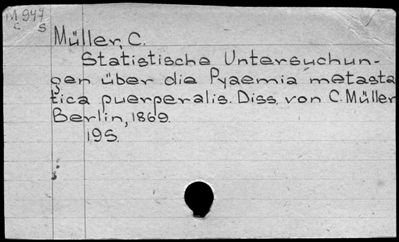 M 947
C S
Müller, C.
Statistische Untersuchun-
gen über die Pyaemia metasta
tica puerperalis. Diss. von C. Müller
Berlin, 1869.
19S.